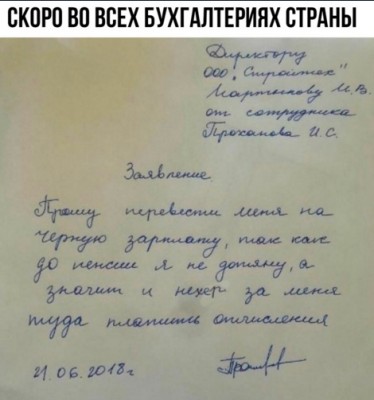 СКОРО ВО ВСЕХ БУХГАЛТЕРИЯХ СТРАНЫ
Директору
ООО „Стройтек"
Мартынову И.В.
от сотрудника
Проханова И.С.
Заявление
Прошу перевести меня на
чёрную зарплату, так как
до пенсии я не дотяну, а
значит и нехер за меня
туда платить отчисления
21.06.2018г